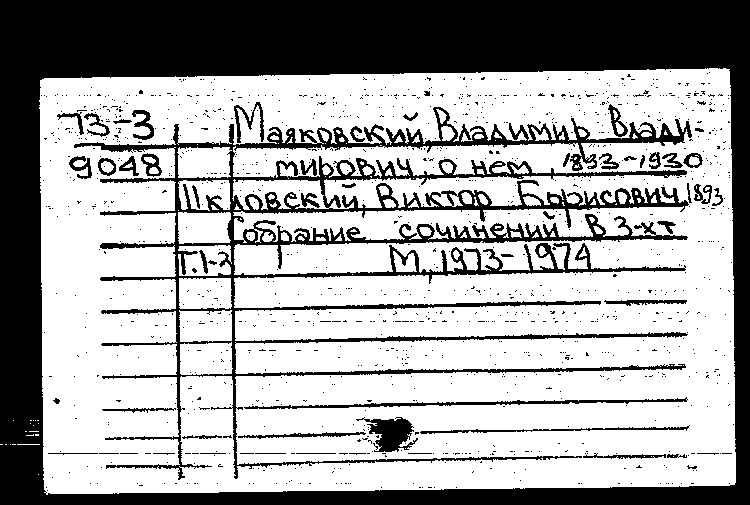 73-3 Маяковский, Владимир Влади-
9048 мирович, о нём, 1893-1930
Шкловский, Виктор Борисович, 1893
Собрание сочинений В 3-хт
Т.1-3 М., 1973-1974